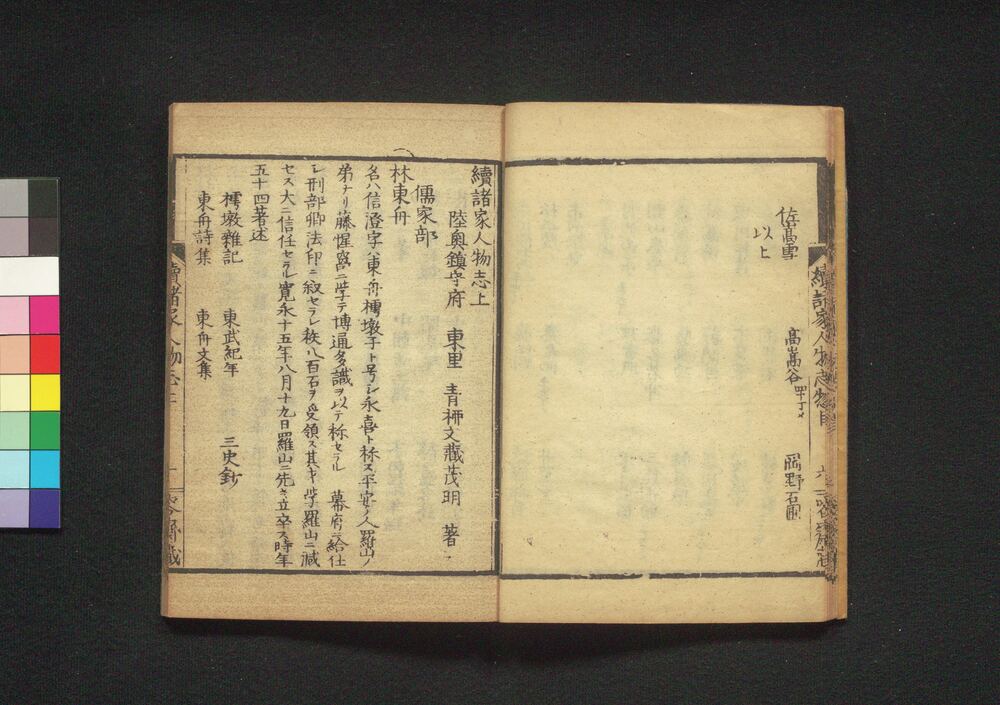 佐嵩雪 高嵩谷 四十丁メ 岡野石圃
以上
續諸家人物志
續諸家人物志上
陸奥鎮守府 東里 青柳文藏茂明 著
儒家部
林東舟
名ハ信澄字ハ東舟樗墩子ト号シ永喜ト称ス平安ノ人羅山ノ
弟ナリ藤惺窩ニ学テ博通多識ヲ以テ称セラル 幕府ニ給仕
シ刑部卿法印ニ叙セラレ秩八百石ヲ受領ス其才学羅山ニ減
セス大ニ信任セラル寛永十五年八月十九日羅山ニ先き立卒ス時年
五十四著述
樗墩雜記 東武紀年 三史鈔
東舟詩集 東舟文集
續諸家人物志